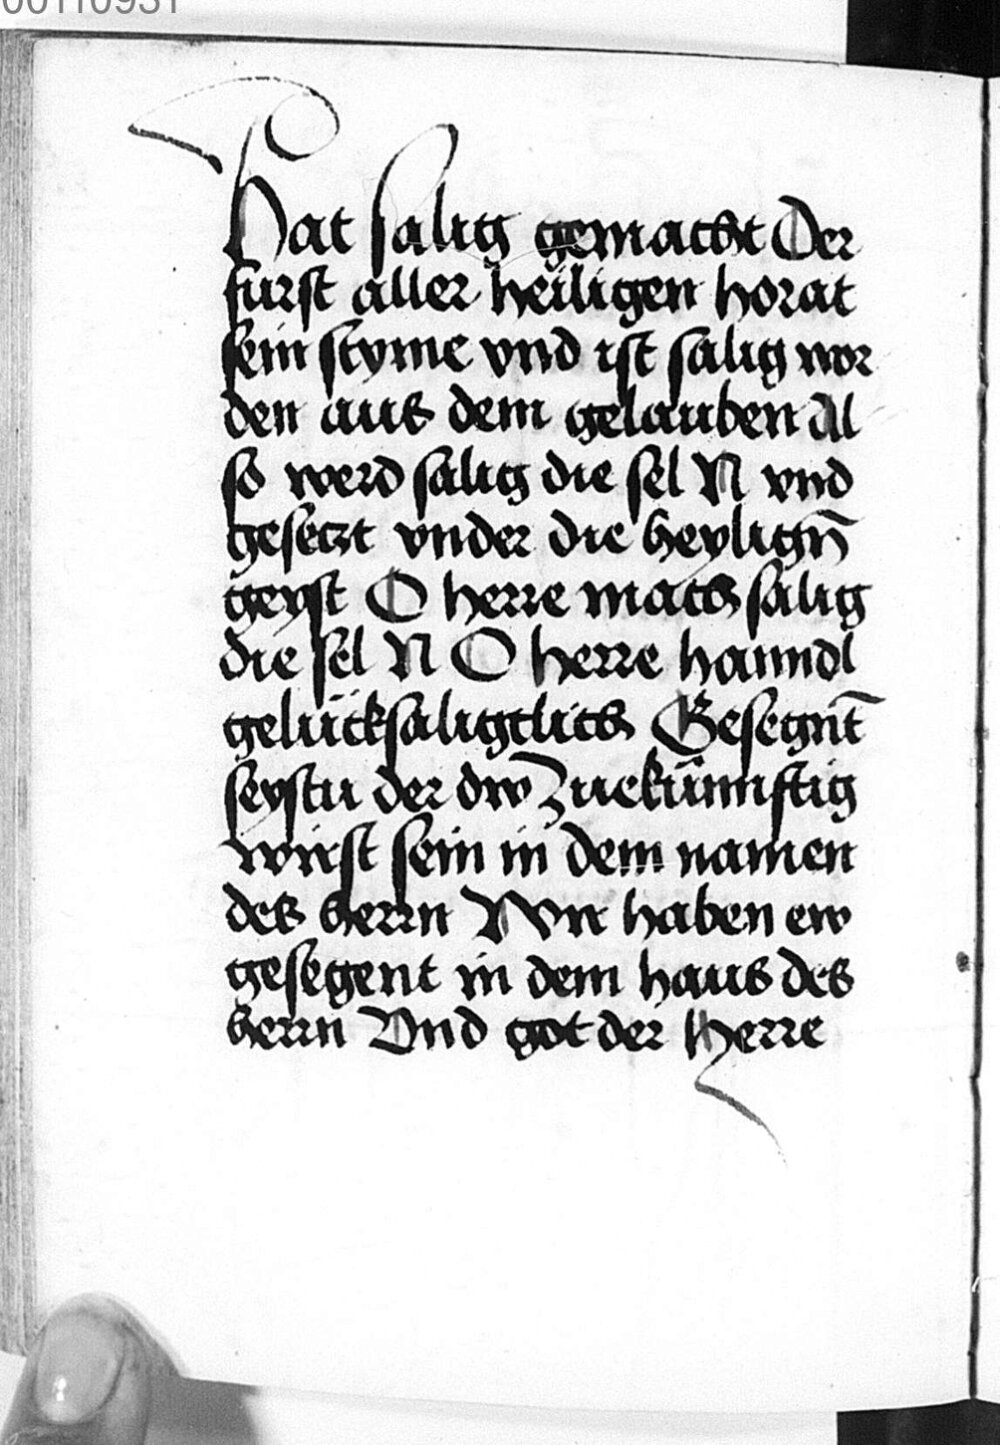 00110931
hat salig gemacht Der
furst aller heiligen horat
sein styme vnd ist salig wor
den aus dem gelauben Al
so werd salig die sel N vnd
gesetzt vnder die heyligñ
geyst O herre mach salig
die sel N O herre hanndl
gelücksaligclich Gesegnt̄
seystu der dw Zuekünnftig
wirst sein in dem namen
des herrn Wir haben ew
gesegent in dem haus des
herrn Vnd got der Herre